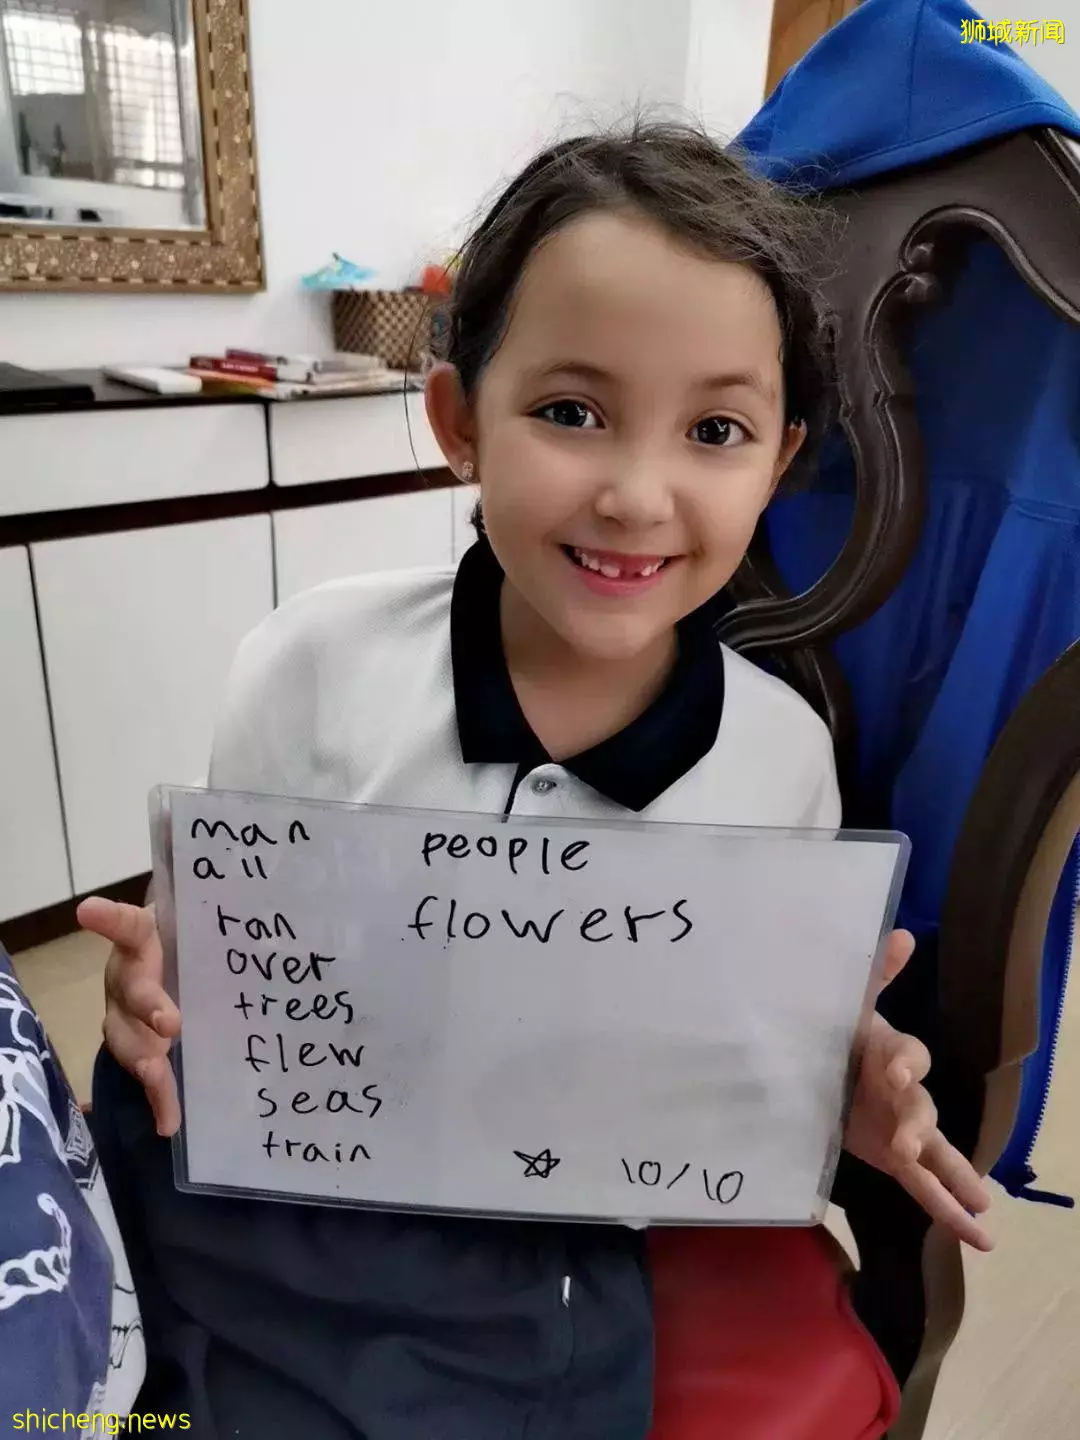 狮城新闻
man
all
ran
over
trees
flew
seas
train
people
flowers
10/10
shicheng.news